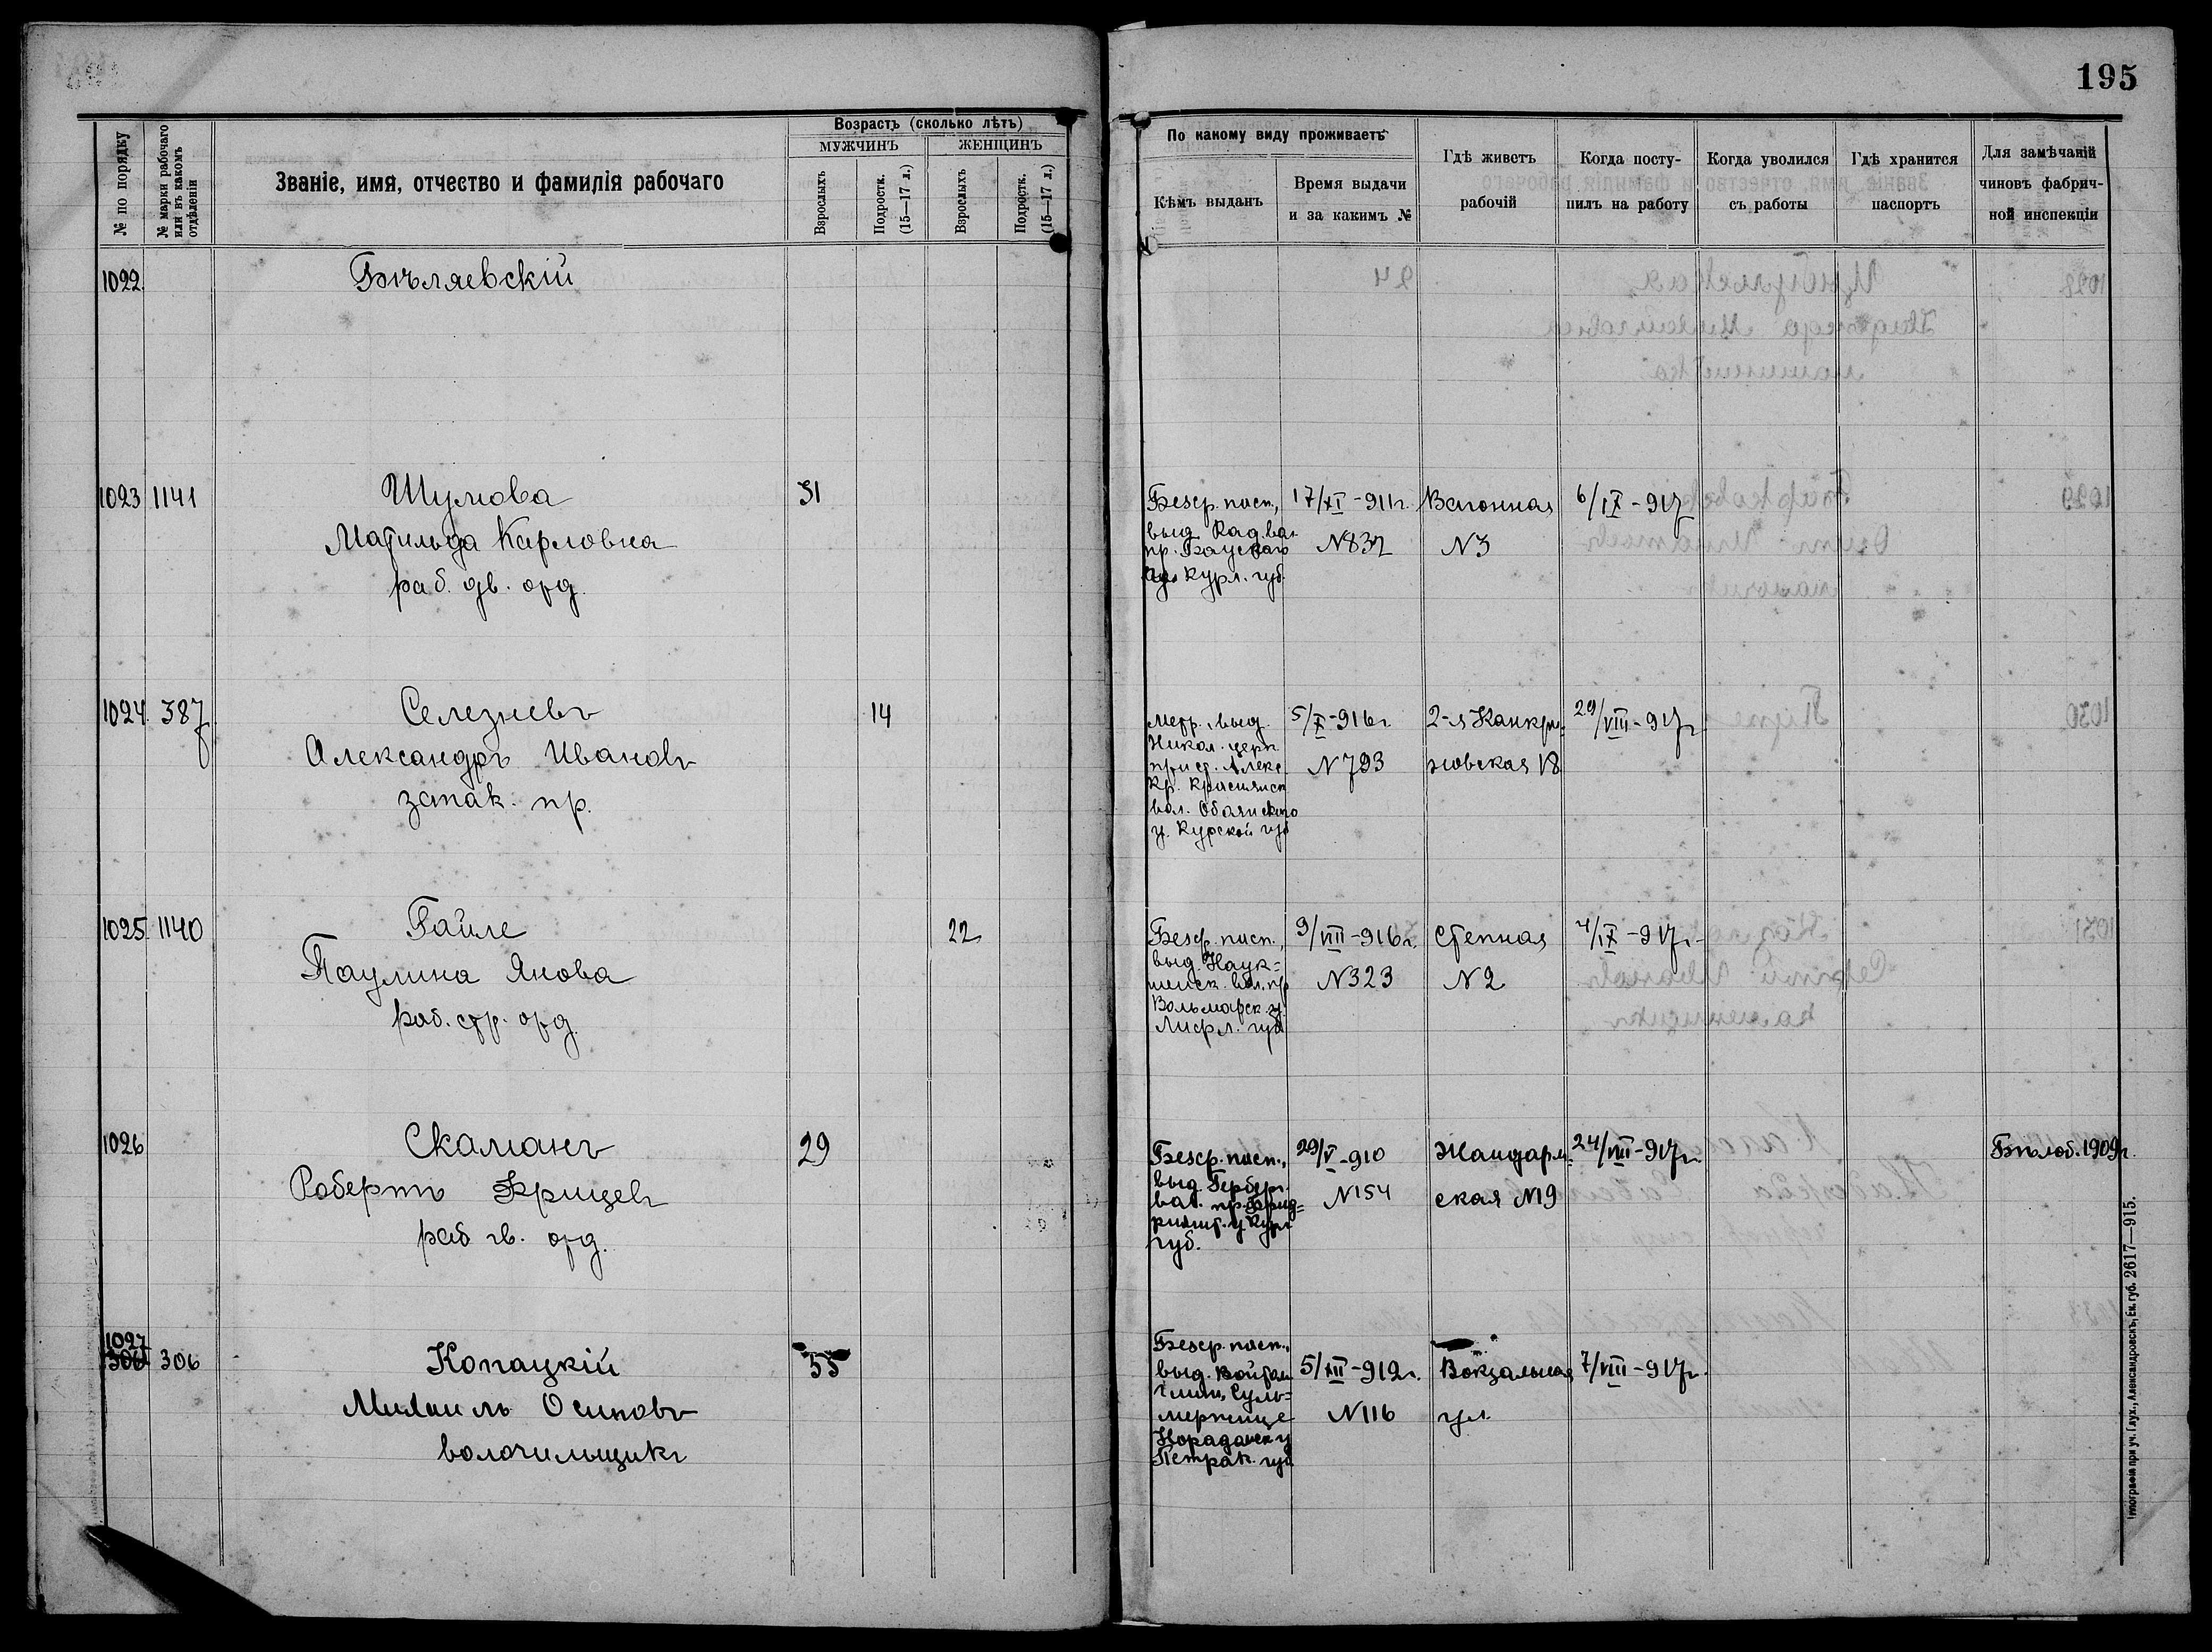 195
Возрастъ (сколько лѣтъ)
МУЖЧИНЪ
ЖЕНЩИНЪ
№ по порядку
№ марки рабочаго или въ какомъ отдѣленіи
Званіе, имя, отчество и фамилія рабочаго
Взрослыхъ
Подростк. (15—17 л.)
Взрослыхъ
Подростк. (15—17 л.)
По какому виду проживаетъ
Кѣмъ выданъ
Время выдачи
и за какимъ №
Гдѣ живетъ
рабочій
Когда посту-
пилъ на работу
Когда уволился
съ работы
Гдѣ хранится
паспортъ
Для замѣчаній
чиновъ фабрич-
ной инспекціи
1022
Бѣляевскій
1023 1141 Шумова 31
Матильда Карловна
раб. дв. отд.
Безср. пасп., 17/XI-911г. Вагонная 6/IX-917
выд.
№832 №3
Курл. губ.
1024 387 Селезневъ 14
Александръ Ивановъ
запак. пр.
Метр. выд. 5/X-916г 2-я Канкри- 29/VIII-917г
Никол. церк.
при с. Алекс. №793 новская 18
вол. Обоянского
у. Курской губ
1025 1140 Гайле 22
Паулина Янова
раб. стр. отд.
Безср. пасп., 9/VIII-916г. Степная 4/IX-917г
выд. Наук-
шенск. вол. пр №323 №2
Вольмарск. у.
Лифл. губ
1026 Скаманъ 29
Робертъ Фрицевъ
раб гв. отд.
Безср. пасп., 29/V-910 Жандарм- 24/VIII-917г. Бѣлоб. 1909г.
выд. Герберг.
вол. пр. Фрид- №154 ская №19
рихшт. у Курл
губ.
1027 306 Копацкій 55
Михаилъ Осиповъ
волочильщикъ
Безср. пасп.,
выд. 5/XII-912г. Вокзальная 7/VIII-917г.
гмин, Суль-
мержице №116 ул.
Новорадомск у
Петрак. губ
Типографія при уч. Глух., Александровскъ, Ек. губ. 2617—915.